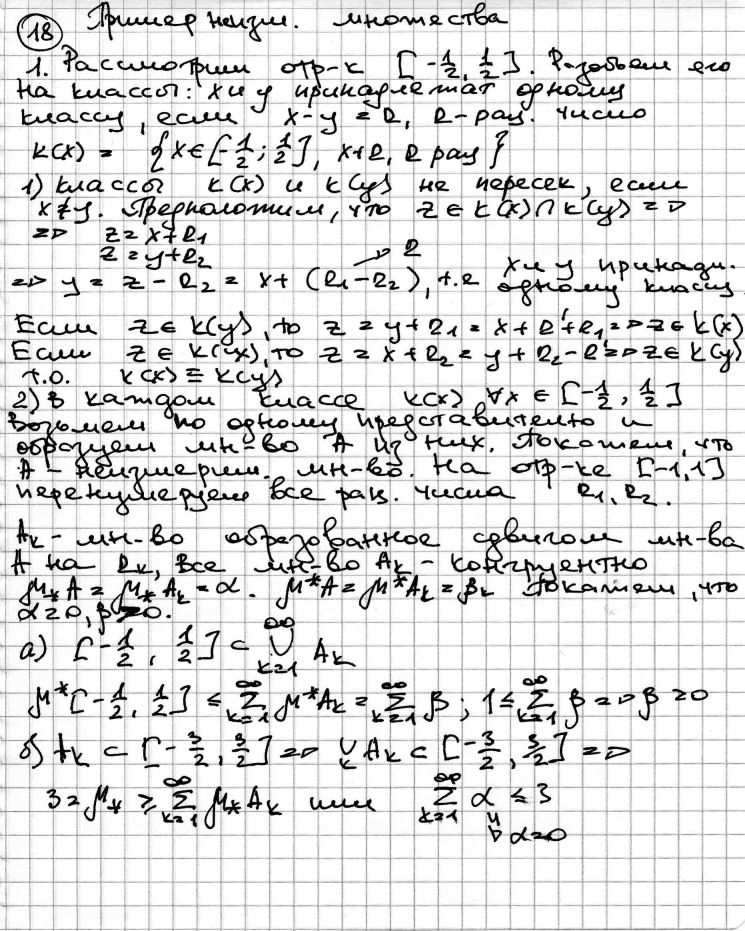 18 Пример неизм. множества
1. Рассмотрим отр-к [-1/2, 1/2]. Разобьем его
на классы: x и y принадлежат одному
классу, если x-y = R, R-рац. число
K(x) = {x ∈ [-1/2; 1/2], x+R, R рац}
1) классы K(x) и K(y) не пересек, если
x≠y. Предположим, что z ∈ K(x) ∩ K(y) =>
=> z = x+R₁
z = y+R₂
=> y = z - R₂ = x + (R₁-R₂) → R, т.е x и y принадл. одному классу
Если z ∈ K(y), то z = y+R₁ = x+R'+R₁ => z ∈ K(x)
Если z ∈ K(x), то z = x+R₂ = y+R₂-R' => z ∈ K(y)
т.о. K(x) ≡ K(y)
2) В каждом классе K(x) ∀x ∈ [-1/2, 1/2]
возьмем по одному представителю и
образуем мн-во A из них. Покажем, что
A - неизмерим. мн-во. На отр-ке [-1,1]
перенумеруем все рац. числа R₁, R₂.
Aₖ - мн-во образованное сдвигом мн-ва
A на Rₖ, все мн-во Aₖ - конгруентно
μ_*A = μ_*Aₖ = α. μ*A = μ*Aₖ = βₖ Покажем, что
α=0, β>0.
а) [-1/2, 1/2] ⊂ ∞∪k=1 Aₖ
μ*[-1/2, 1/2] ≤ ∞∑k=1 μ*Aₖ = ∞∑k=1 β; 1 ≤ ∞∑k=1 β => β>0
б) Aₖ ⊂ [-3/2, 3/2] => ∪k Aₖ ⊂ [-3/2, 3/2] =>
3 = μ_* ≥ ∞∑k=1 μ_*Aₖ или ∞∑k=1 α ≤ 3
⇓ α=0